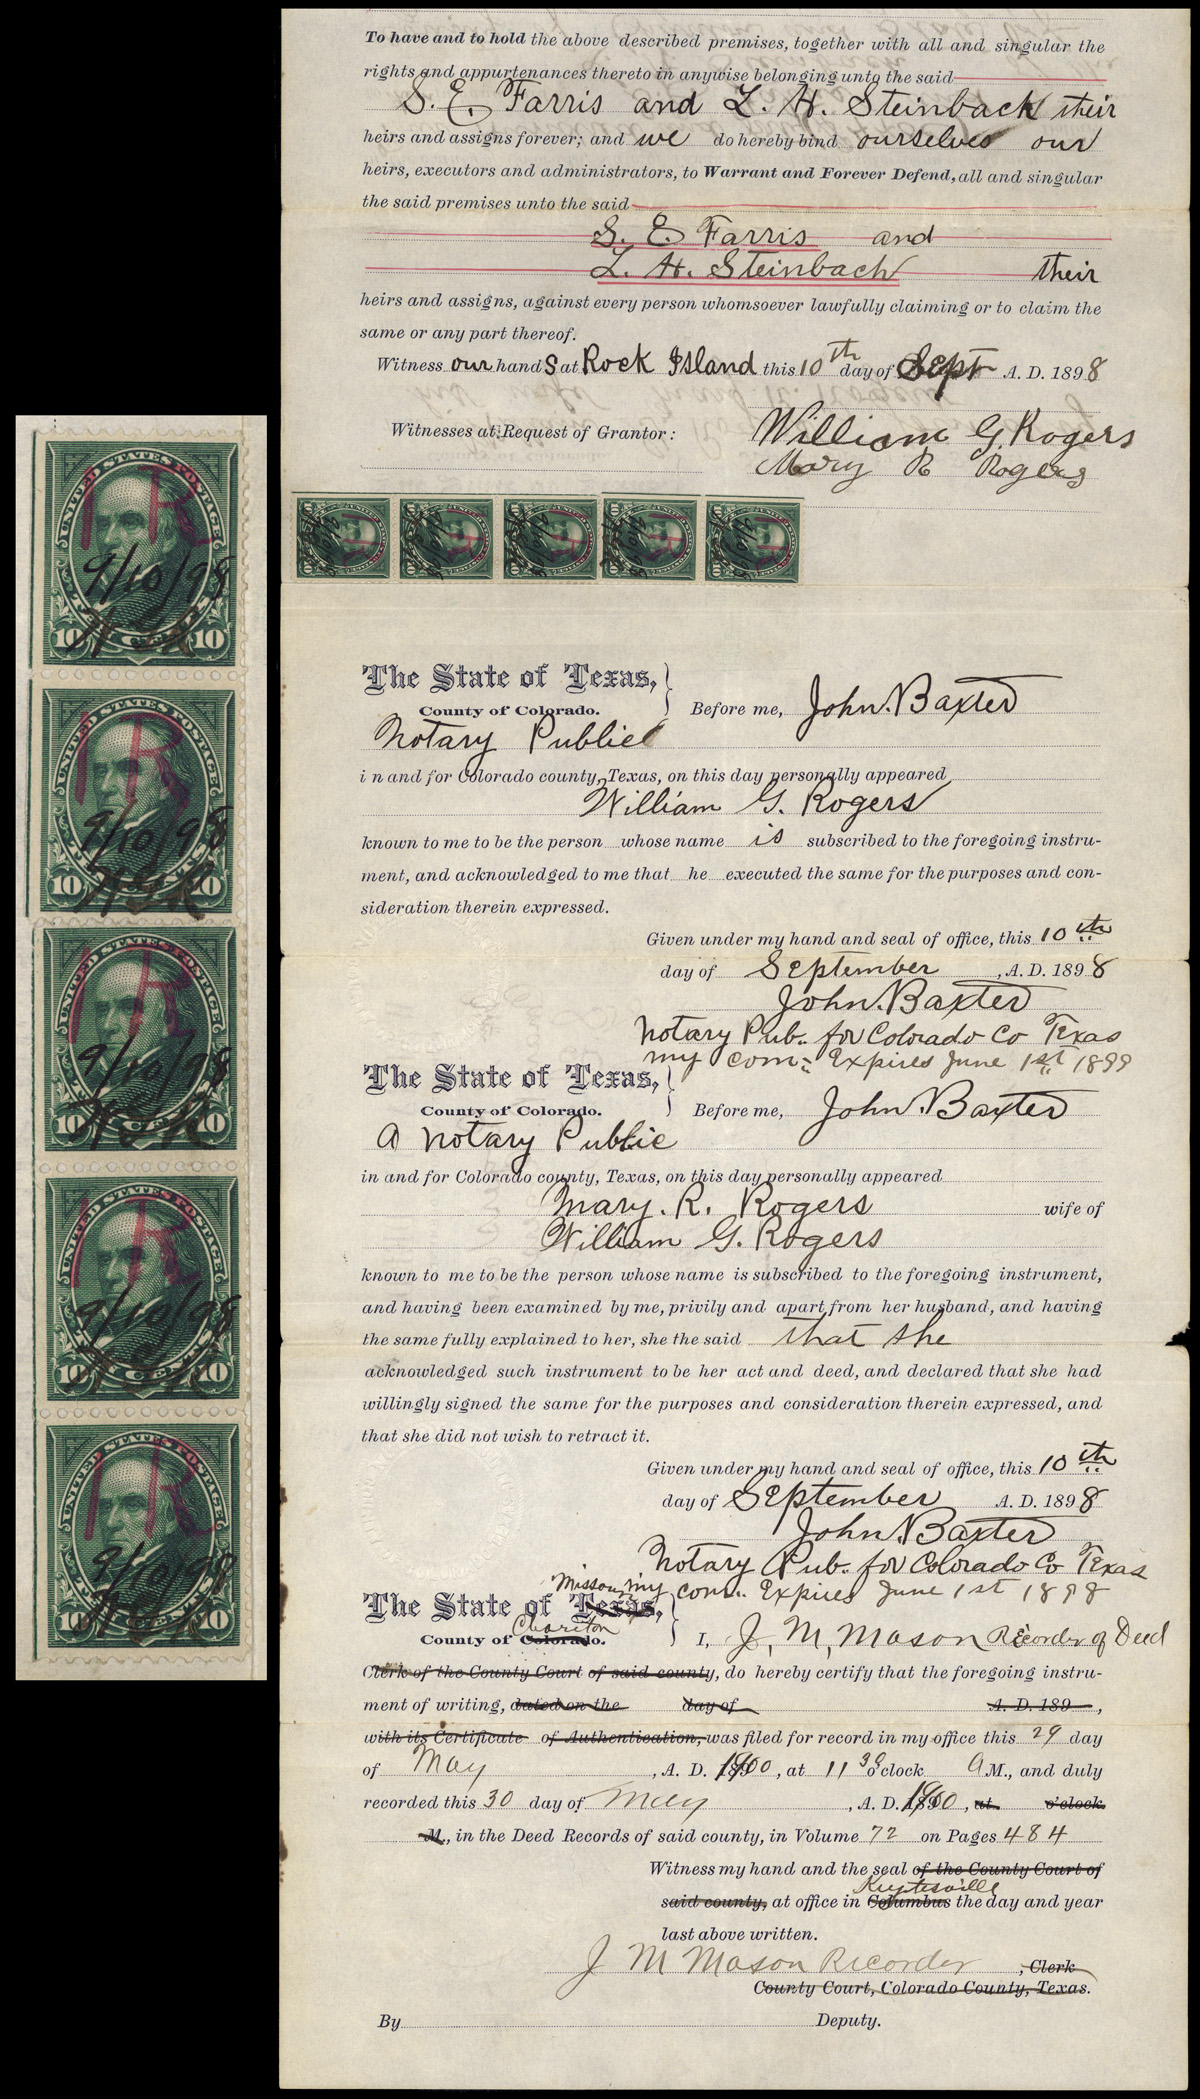 UNITED STATES POSTAGE
I R
9/10/98
10 TEN CENTS 10
UNITED STATES POSTAGE
I R
9/10/98
10 TEN CENTS 10
UNITED STATES POSTAGE
I R
9/10/98
10 TEN CENTS 10
UNITED STATES POSTAGE
I R
9/10/98
10 TEN CENTS 10
UNITED STATES POSTAGE
I R
9/10/98
10 TEN CENTS 10
To have and to hold the above described premises, together with all and singular the
rights and appurtenances thereto in anywise belonging unto the said
S. E. Farris and L. H. Steinback their
heirs and assigns forever; and we do hereby bind ourselves our
heirs, executors and administrators, to Warrant and Forever Defend, all and singular
the said premises unto the said
S. E. Farris and
L. H. Steinbach their
heirs and assigns, against every person whomsoever lawfully claiming or to claim the
same or any part thereof.
Witness our hands at Rock Island this 10th day of Sept A. D. 1898
Witnesses at Request of Grantor: William G. Rogers
Mary R Rogers
The State of Texas,
County of Colorado. } Before me, John. Baxter
Notary Public
in and for Colorado county, Texas, on this day personally appeared
William G. Rogers
known to me to be the person whose name is subscribed to the foregoing instru-
ment, and acknowledged to me that he executed the same for the purposes and con-
sideration therein expressed.
Given under my hand and seal of office, this 10th
day of September, A. D. 1898
John. Baxter
Notary Pub. for Colorado Co Texas
my com: Expires June 1st 1899
The State of Texas,
County of Colorado. } Before me, John. Baxter
A Notary Public
in and for Colorado county, Texas, on this day personally appeared
Mary. R. Rogers wife of
William G. Rogers
known to me to be the person whose name is subscribed to the foregoing instrument,
and having been examined by me, privily and apart from her husband, and having
the same fully explained to her, she the said that she
acknowledged such instrument to be her act and deed, and declared that she had
willingly signed the same for the purposes and consideration therein expressed, and
that she did not wish to retract it.
Given under my hand and seal of office, this 10th
day of September A. D. 1898
John. Baxter
Notary Pub. for Colorado Co Texas
my com. Expires June 1st 1898
Missouri
The State of Texas,
Chariton
County of Colorado. } I, J. M. Mason Recorder of Deed
Clerk of the County Court of said county, do hereby certify that the foregoing instru-
ment of writing, dated on the day of A. D. 189 ,
with its Certificate of Authentication, was filed for record in my office this 29 day
of May, A. D. 1900, at 11 30 o'clock A M., and duly
recorded this 30 day of May, A. D. 1900, at o'clock
M., in the Deed Records of said county, in Volume 72 on Pages 484
Witness my hand and the seal of the County Court of
Keytesville
said county, at office in Columbus the day and year
last above written.
J M Mason Recorder, Clerk
County Court, Colorado County, Texas.
By Deputy.